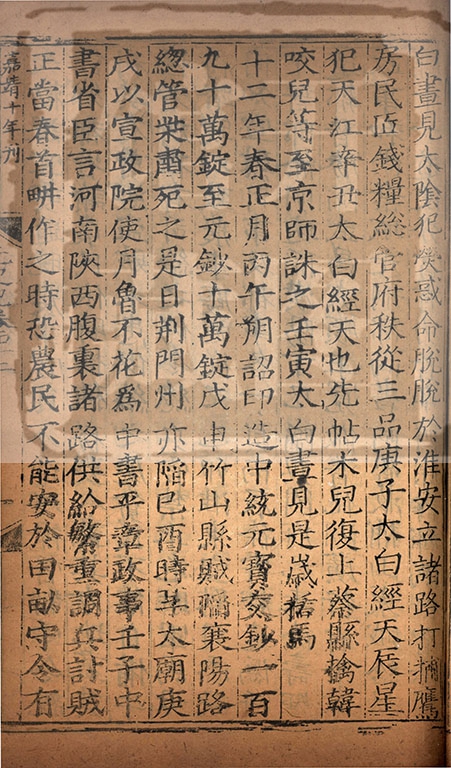 白晝見太陰犯熒惑命脫脫於淮安立諸路打捕鷹
房民匠錢糧總管府秩從三品庚子太白經天辰星
犯天江辛丑太白經天也先帖木兒復上蔡縣擒韓
咬兒等至京師誅之壬寅太白晝見是歲
十二年春正月丙午朔詔印造中統元寶交鈔一百
九十萬錠至元鈔十萬錠戊申竹山縣賊陷襄陽路
緫管柴肅死之是日荆門州亦陷巳酉時享太廟庚
戌以宣政院使月魯不花爲中書平章政事壬子中
書省臣言河南陝西腹裏諸路供給繁重調兵計賊
正當春首畊作之時恐農民不能安於田畝守令有
嘉靖十年刊